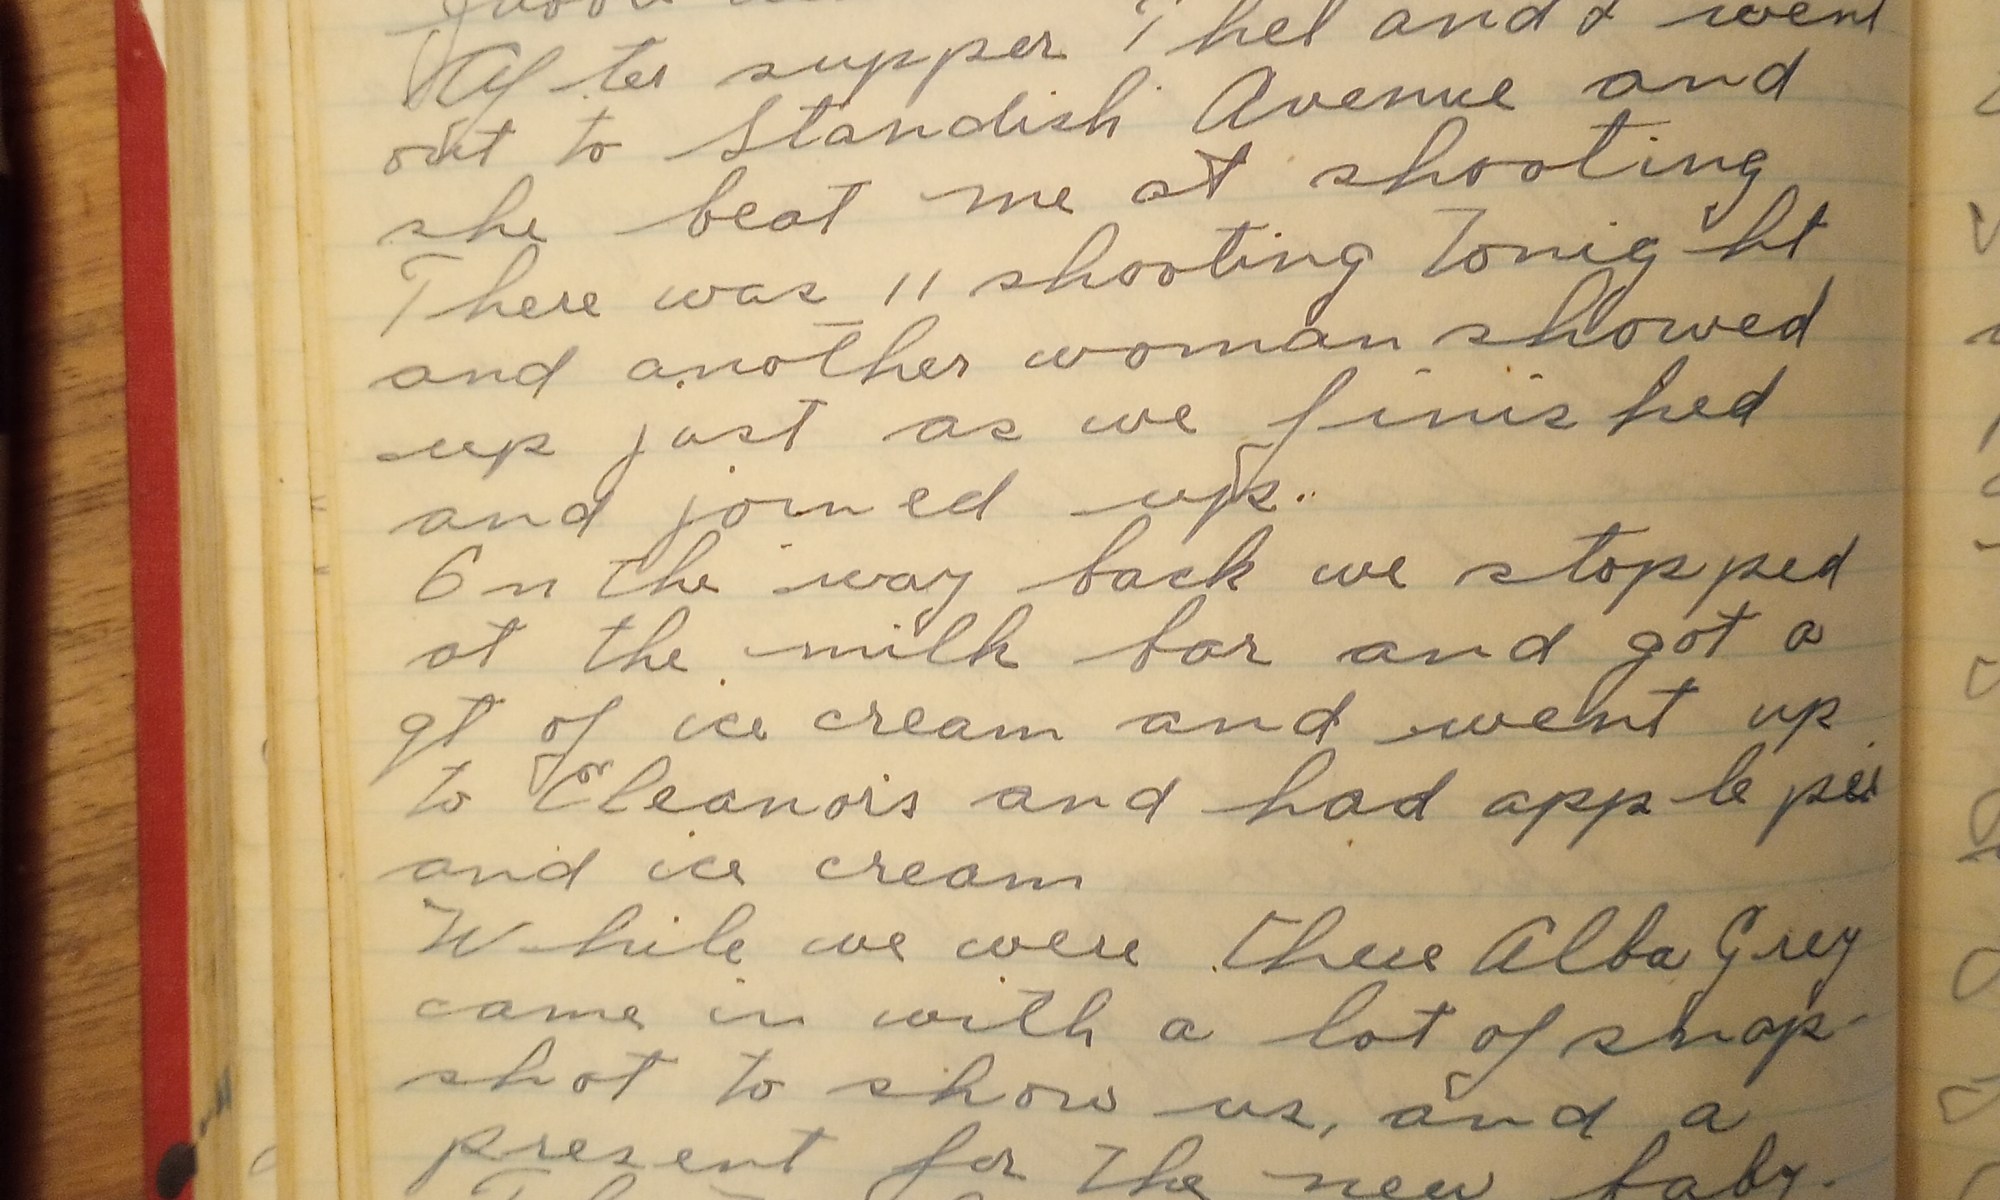 After supper Thel and I went
out to Standish Avenue and
she beat me at shooting
There was 11 shooting Tonight
and another woman showed
up just as we finished
and joined up.
On the way back we stopped
at the milk bar and got a
qt of ice cream and went up
to Eleanors and had apple pei
and ice cream
While we were there Alba Grey
came in with a lot of snap-
shot to show us, and a
present for the new baby.